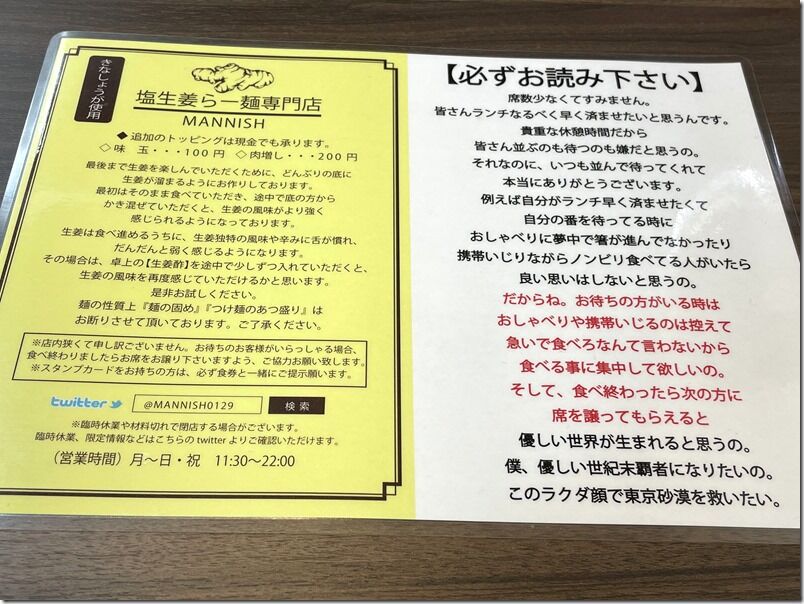 きなしょうが使用
塩生姜らー麺専門店
MANNISH
◆ 追加のトッピングは現金でも承ります。
◇ 味 玉・・・100 円 ◇ 肉増し・・・200 円
最後まで生姜を楽しんでいただくために、どんぶりの底に
生姜が溜まるようにお作りしております。
最初はそのまま食べていただき、途中で底の方から
かき混ぜていただくと、生姜の風味がより強く
感じられるようになっております。
生姜は食べ進めるうちに、生姜独特の風味や辛みに舌が慣れ、
だんだんと弱く感じるようになります。
その場合は、卓上の【生姜酢】を途中で少しずつ入れていただくと、
生姜の風味を再度感じていただけるかと思います。
是非お試しください。
麺の性質上『麺の固め』『つけ麺のあつ盛り』は
お断りさせて頂いております。ご了承ください。
※店内狭くて申し訳ございません。お待ちのお客様がいらっしゃる場合、
食べ終わりましたらお席をお譲り下さいますよう、ご協力お願い致します。
※スタンプカードをお持ちの方は、必ず食券と一緒にご提示願います。
twitter @MANNISH0129 検索
※臨時休業や材料切れで閉店する場合がございます。
臨時休業、限定情報などはこちらの twitter よりご確認いただけます。
（営業時間）月～日・祝 11:30～22:00
【必ずお読み下さい】
席数少なくてすみません。
皆さんランチなるべく早く済ませたいと思うんです。
貴重な休憩時間だから
皆さん並ぶのも待つのも嫌だと思うの。
それなのに、いつも並んで待ってくれて
本当にありがとうございます。
例えば自分がランチ早く済ませたくて
自分の番を待ってる時に
おしゃべりに夢中で箸が進んでなかったり
携帯いじりながらノンビリ食べてる人がいたら
良い思いはしないと思うの。
だからね。お待ちの方がいる時は
おしゃべりや携帯いじるのは控えて
急いで食べろなんて言わないから
食べる事に集中して欲しいの。
そして、食べ終わったら次の方に
席を譲ってもらえると
優しい世界が生まれると思うの。
僕、優しい世紀末覇者になりたいの。
このラクダ顔で東京砂漠を救いたい。